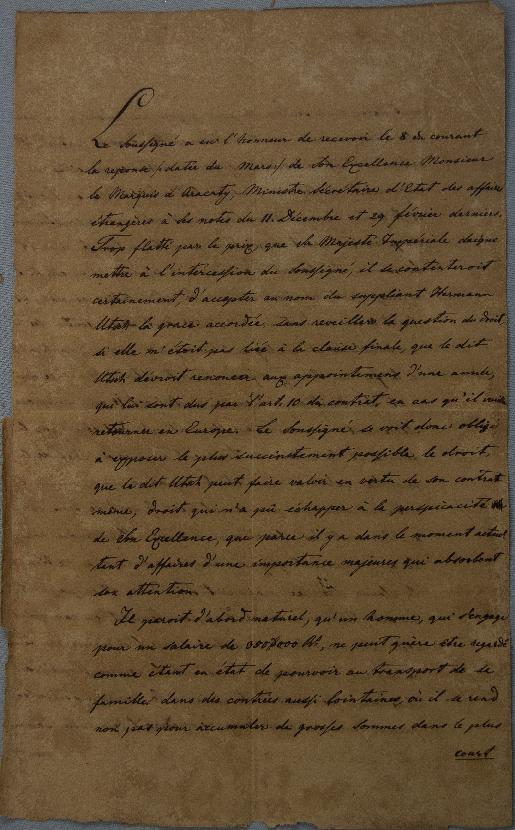 Le Soussigné a eu l'honneur de recevoir le 8 du courant
la reponse /: datée du Mars :/ de Son Excellence Monsieur
le Marquis d'Aracaty, Ministre Secretaire d'Etat des affaires
étrangères à ses notes du 11. Decembre et 29 février derniers.
Trop flatté par le prix, que Sa Majesté Impériale daigne
mettre à l'intercession du Soussigné, il se contenteroit
certainement, d'accepter au nom du suppliant Hermann
la grace accordée, sans reveiller la question du droit,
si elle n'étoit pas liée à la clause finale, que le dit
devroit renoncer aux appointemens d'une année,
qui lui sont dus par l'art. 10 du contrat, en cas qu'il
retourner en Europe. Le Soussigné se voit donc obligé
à exposer le plus succinctement possible le droit,
que le dit peut faire valoir en vertu de son contrat
même, droit qui n'a pû échapper à la perspicacité
de Son Excellence, que parce il y a dans le moment actuel
tant d'affaires d'une importance majeure qui absorbent
son attention.
Il paroit d'abord naturel, qu'un homme, qui s'engage
pour un salaire de ne peut guère être regardé
comme étant en état de pourvoir au transport de sa
famille dans des contrées aussi lointaines, où il se rend
non pas pour accumuler de grosses sommes dans le plus
court